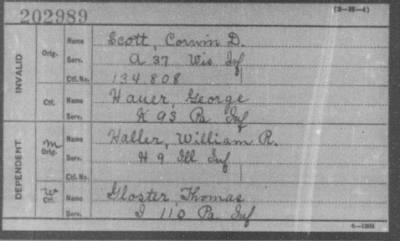 202989
(3-88-4)
INVALID Orig. Name Scott, Corwin D.
Serv. A 37 Wis Inf
Ctf. No. 134.808
Ctf. Name Hauer, George
Serv. K 93 Pa Inf
DEPENDENT M Orig. Name Haller, William R.
Serv. H 9 Ill Inf
Ctf. No.
Ctf. Name Gloster, Thomas
Serv. I 110 Pa Inf